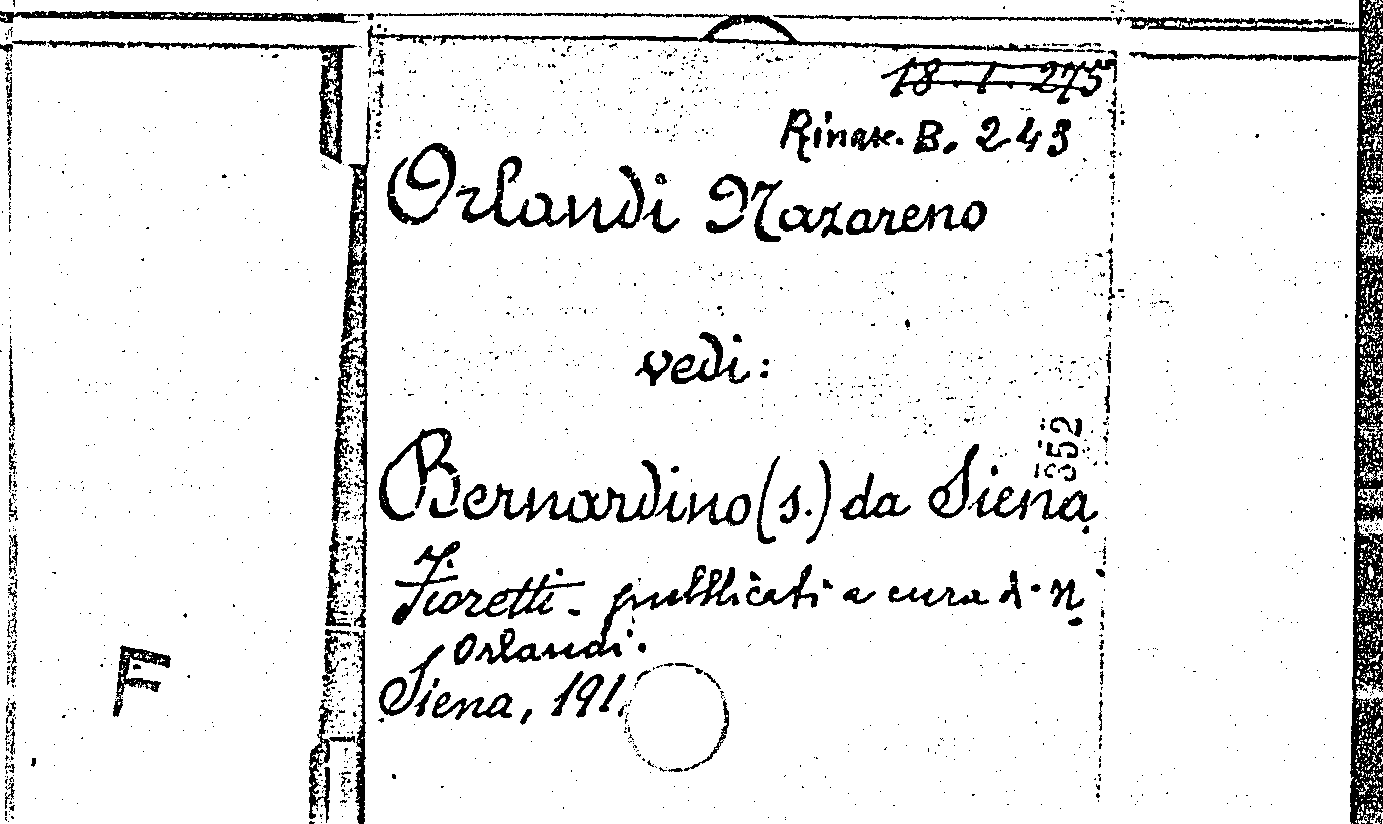 18.1.275
Rinasc. B. 243
Orlandi Nazareno
vedi:
352
Bernardino (s.) da Siena
Fioretti - pubblicati a cura di N.
Orlandi.
Siena, 191
F